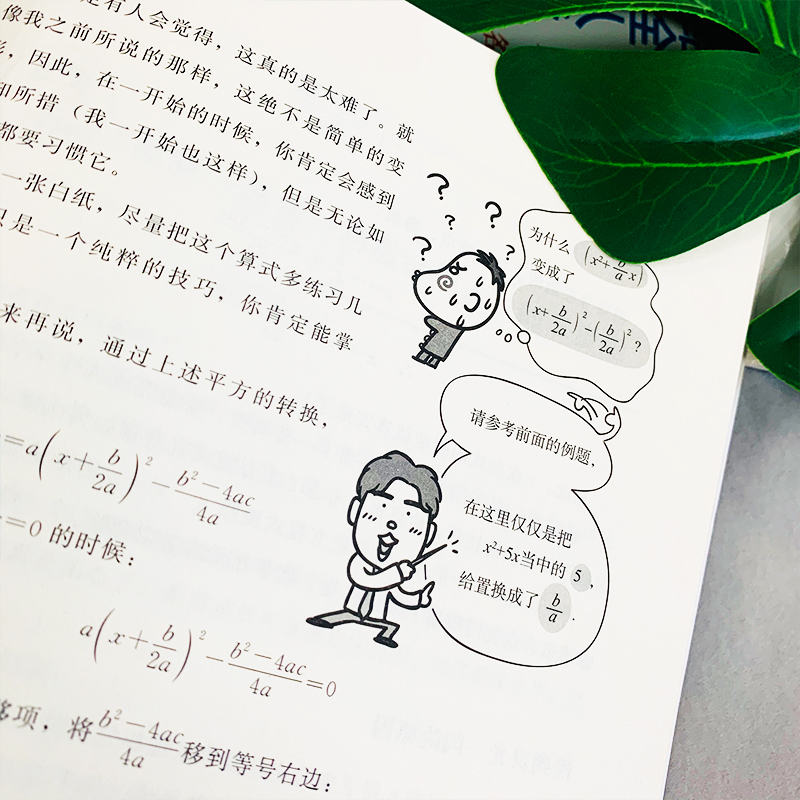 是有人会觉得，这真的是太难了。就
像我之前所说的那样，这绝不是简单的变
形，因此，在一开始的时候，你肯定会感到
知所措（我一开始也这样），但是无论如
都要习惯它。
一张白纸，尽量把这个算式多练习几
只是一个纯粹的技巧，你肯定能掌
来再说，通过上述平方的转换，
=a(x+b/2a)²-(b²-4ac)/4a
=0 的时候：
a(x+b/2a)²-(b²-4ac)/4a=0
移项，将(b²-4ac)/4a移到等号右边：
? ? ? ? ?
为什么 (x²+b/a x)
变成了
(x+b/2a)²-(b/2a)²?
请参考前面的例题，
在这里仅仅是把
x²+5x当中的 5，
给置换成了 b/a.